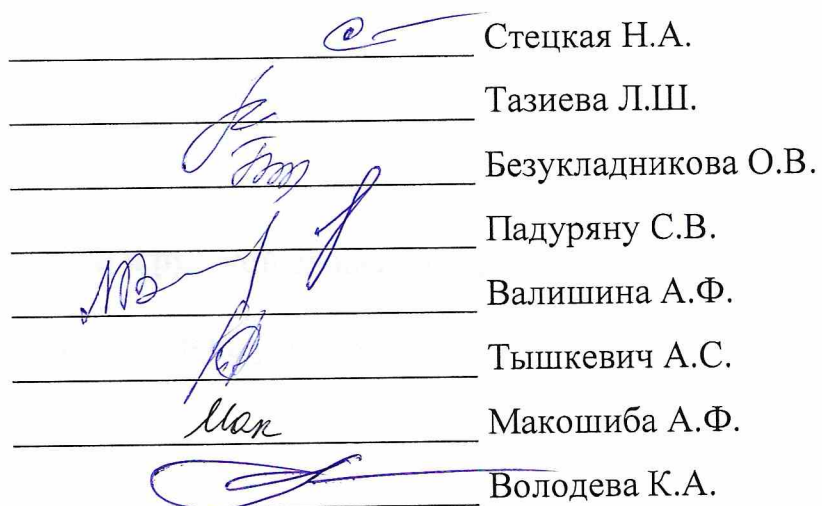 Стецкая Н.А.
Тазиева Л.Ш.
Безукладникова О.В.
Падуряну С.В.
Валишина А.Ф.
Тышкевич А.С.
Мак Макошиба А.Ф.
Володева К.А.